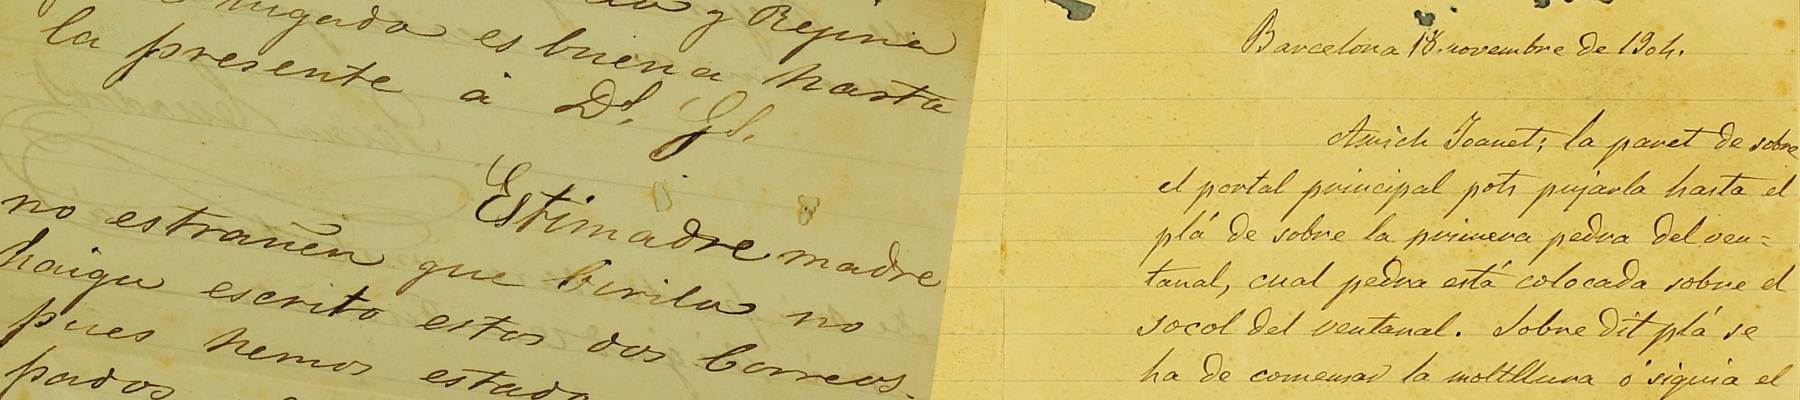 y Rejina
es buena hasta
la presente á Ds. Gs.
Estimadre madre
no estrañen que birila no
haiga escrito estos dos Correos.
pues hemos estado
pados
Barcelona 18 novembre de 1904.
Amich Joanet; la paret de sobre
el portal principal pots pujarla hasta el
plá de sobre la primera pedra del ven=
tanal, cual pedra está colocada sobre el
socol del ventanal. Sobre dit plá se
ha de comensar la molthura ó siguia el